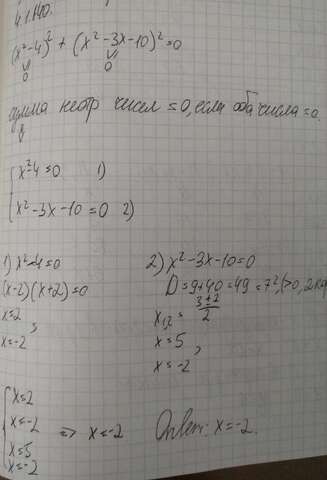 (x²-4)² + (x²-3x-10)²=0
0 0
сумма неотр чисел =0, если оба числа =0.
{ x²-4=0 1)
x²-3x-10=0 2)
1) x²-4=0
(x-2)(x+2)=0
x=2
x=-2
2) x²-3x-10=0
D=9+40=49=7², (>0, 2
x₁,₂= 3±7/2
x=5
x=-2
{ x=2
x=-2
x=5
x=-2
=> x=-2 Ответ: x=-2.